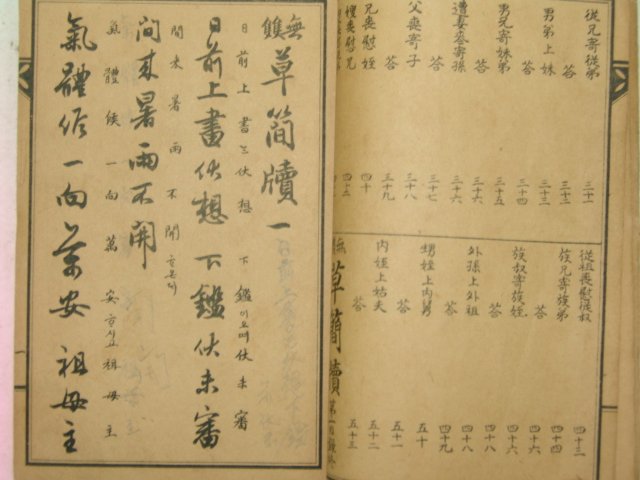 從兄寄從弟 三十一
答 三十二
男弟上妹 三十三
答 三十四
男兄寄妹弟 三十五
答 三十六
遭妻喪寄孫 三十六
答 三十七
父喪寄子 三十八
答 三十九
兄喪慰姪 四十
嫂喪慰兄
從祖喪慰從叔 四十三
族兄寄族弟 四十四
答 四十六
族叔寄族姪 四十六
答 四十八
外孫上外祖 四十八
答 四十九
甥姪上內舅 五十
答 五十一
內姪上姑夫 五十二
答 五十三
草簡牘
無雙草簡牘一
日前上書는伏想 下鑑이오며伏未審
日前上書伏想 下鑑伏未審
間來暑雨不開
間來暑雨不開
氣體候一向萬安 祖母主
氣體候一向萬安 祖母主